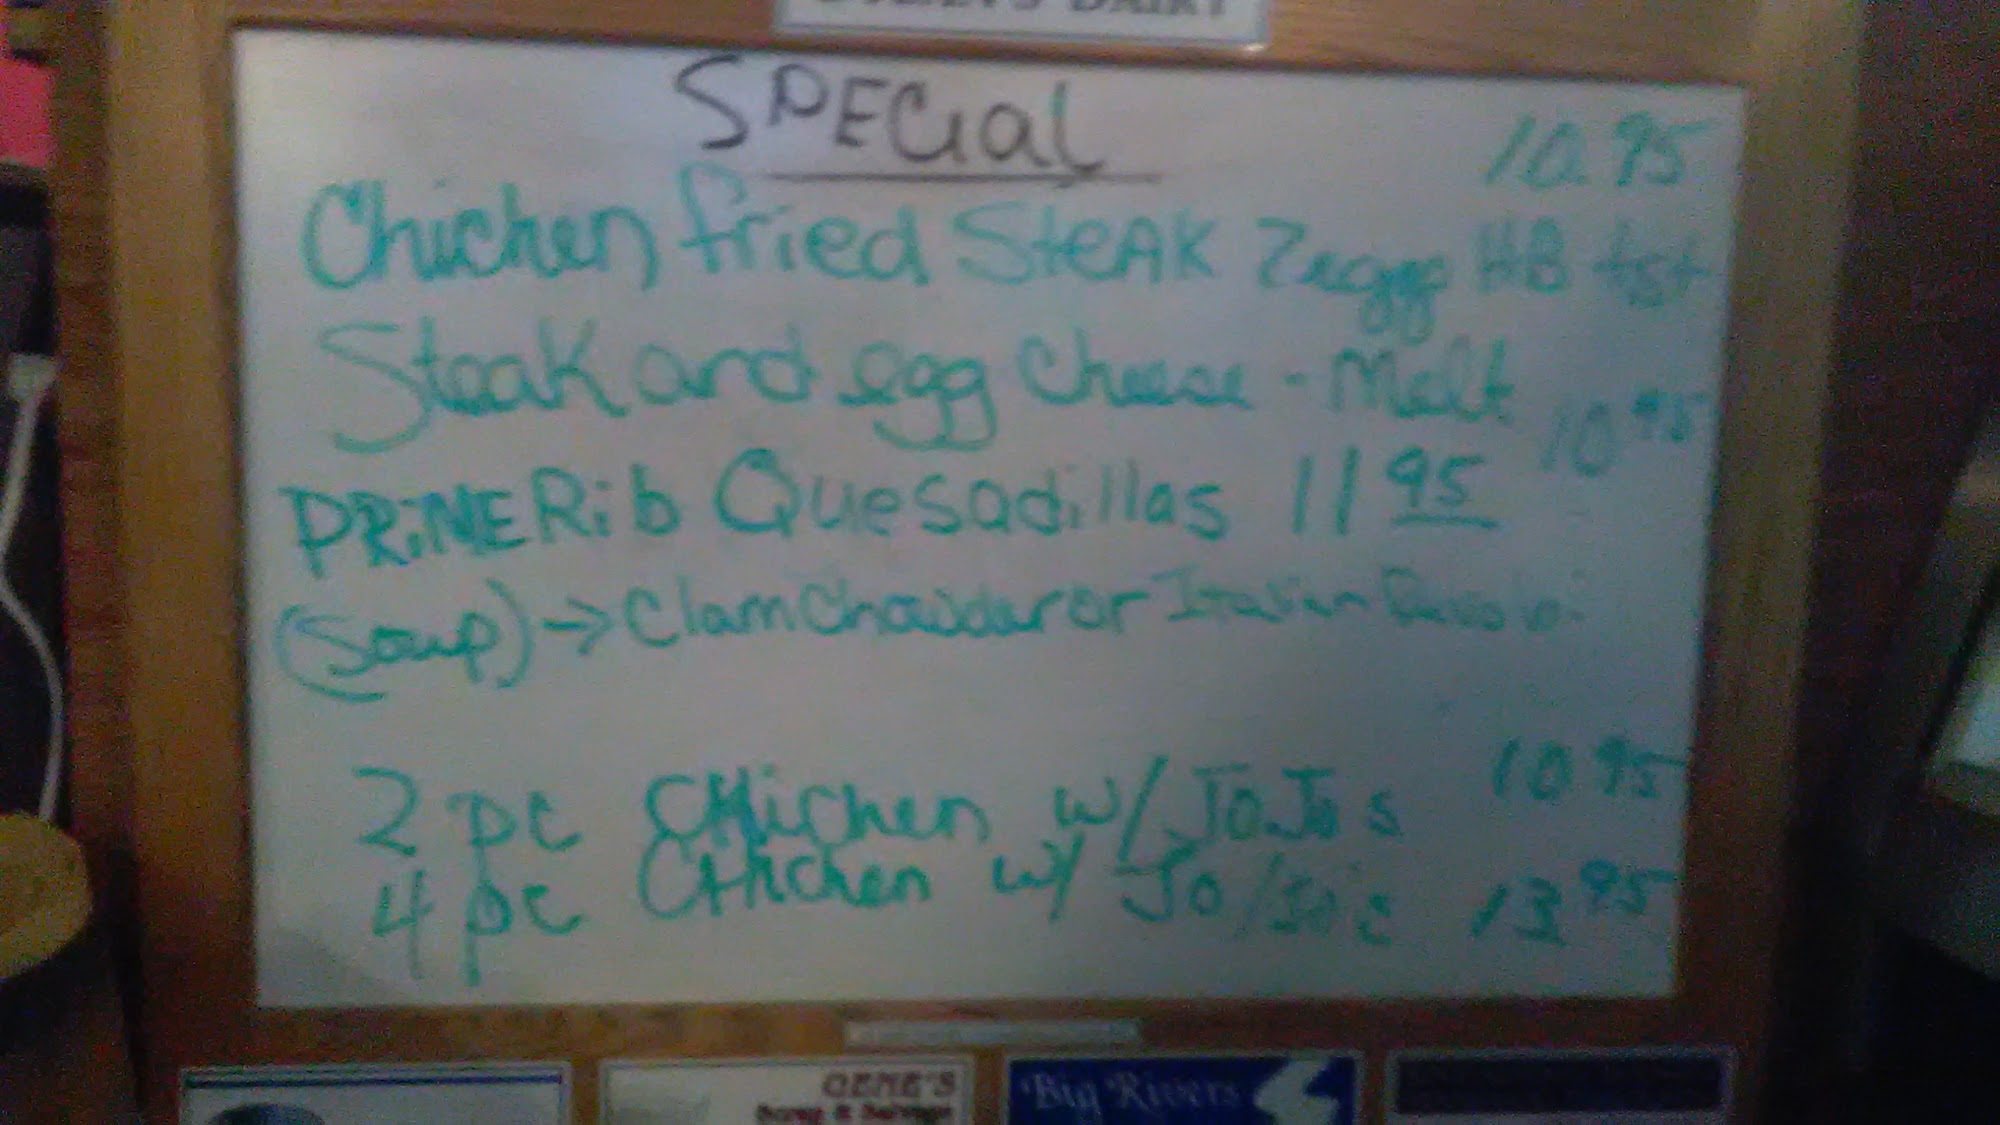 DAIRY
SPECial
10.95
Chicken fried SteAK 2 egg HB tst
Steak and egg Cheese - Melt
10 95
PRiME Rib Quesadillas 11 95
(Soup) → Clam Chowder or Italian
2 pc CHicken w/ JoJos 10 95
4 pc CHicken w/ Jo/Jo's 13 95
GENE'S
Big Rivers